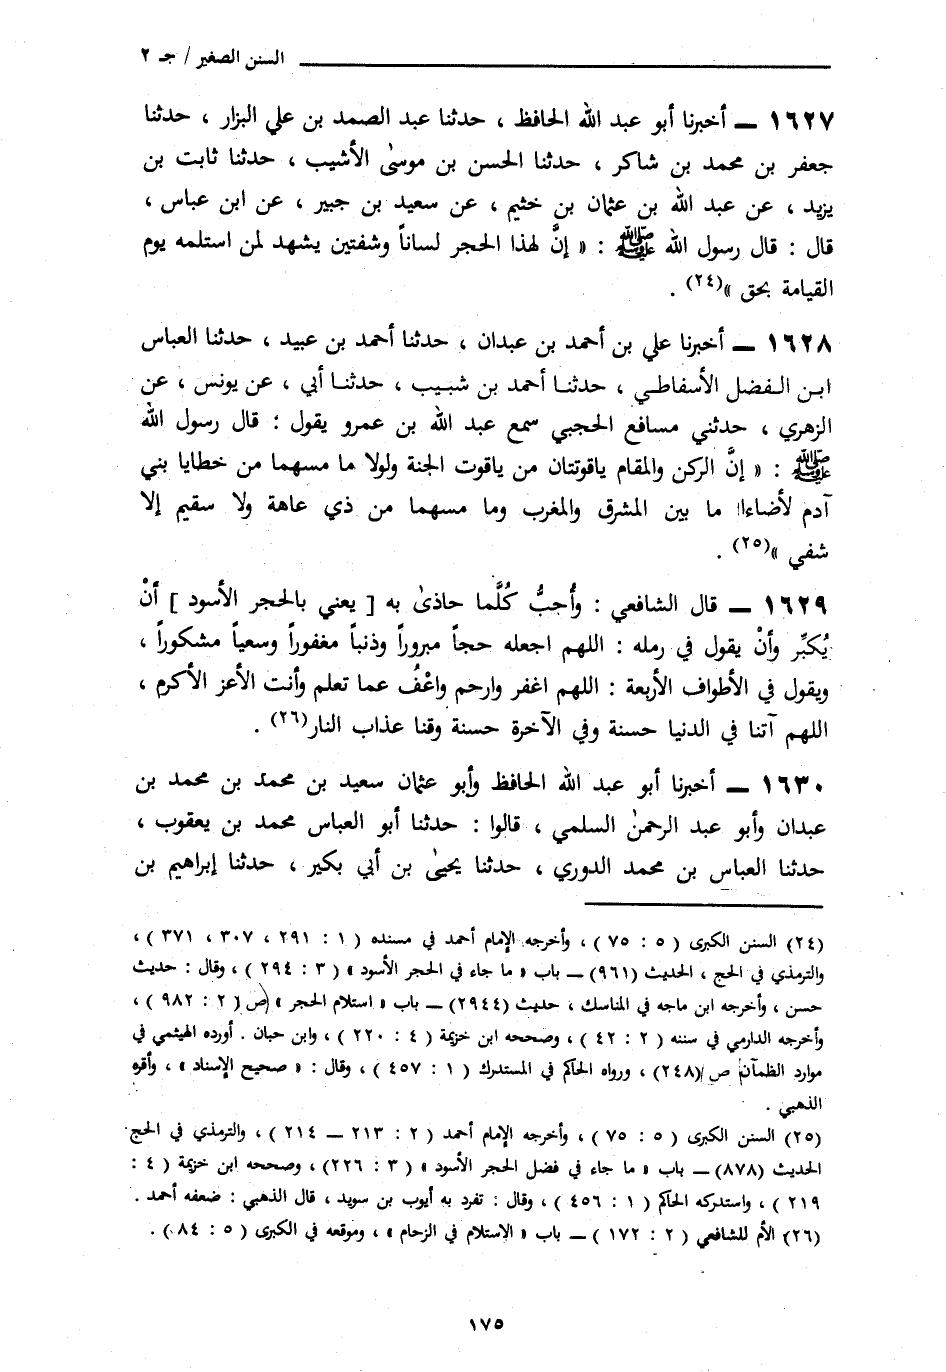 السنن الصغير / جـ ٢
١٦٢٧ ــ أخبرنا أبو عبد الله الحافظ ، حدثنا عبد الصمد بن علي البزار ، حدثنا
جعفر بن محمد بن شاكر ، حدثنا الحسن بن موسىٰ الأشيب ، حدثنا ثابت بن
يزيد ، عن عبد الله بن عثمان بن خثيم ، عن سعيد بن جبير ، عن ابن عباس ،
قال : قال رسول الله ﷺ : « إنَّ لهذا الحجر لساناً وشفتين يشهد لمن استلمه يوم
القيامة بحق »(٢٤) .
١٦٢٨ ــ أخبرنا علي بن أحمد بن عبدان ، حدثنا أحمد بن عبيد ، حدثنا العباس
ابن الفضل الأسفاطي ، حدثنا أحمد بن شبيب ، حدثنا أبي ، عن يونس ، عن
الزهري ، حدثني مسافع الحجبي سمع عبد الله بن عمرو يقول : قال رسول الله
ﷺ : « إنَّ الركن والمقام ياقوتتان من ياقوت الجنة ولولا ما مسهما من خطايا بني
آدم لأضاءا ما بين المشرق والمغرب وما مسهما من ذي عاهة ولا سقيم إلا
شفي »(٢٥) .
١٦٢٩ ــ قال الشافعي : وأُحِبُّ كُلَّما حاذىٰ به [ يعني بالحجر الأسود ] أنْ
يُكبِّر وأنْ يقول في رمله : اللهم اجعله حجاً مبروراً وذنباً مغفوراً وسعياً مشكوراً ،
ويقول في الأطواف الأربعة : اللهم اغفر وارحم واعْفُ عما تعلم وأنت الأعز الأكرم ،
اللهم آتنا في الدنيا حسنة وفي الآخرة حسنة وقنا عذاب النار(٢٦) .
١٦٣٠ ــ أخبرنا أبو عبد الله الحافظ وأبو عثمان سعيد بن محمد بن محمد بن
عبدان وأبو عبد الرحمنٰ السلمي ، قالوا : حدثنا أبو العباس محمد بن يعقوب ،
حدثنا العباس بن محمد الدوري ، حدثنا يحيىٰ بن أبي بكير ، حدثنا إبراهيم بن
(٢٤) السنن الكبرى ( ٥ : ٧٥ ) ، وأخرجه الإمام أحمد في مسنده ( ١ : ٢٩١ ، ٣٠٧ ، ٣٧١ ) ،
والترمذي في الحج ، الحديث (٩٦١) ــ باب « ما جاء في الحجر الأسود » ( ٣ : ٢٩٤ ) ، وقال : حديث
حسن ، وأخرجه ابن ماجه في المناسك ، حديث (٢٩٤٤) ــ باب « استلام الحجر » ص ( ٢ : ٩٨٢ ) ،
وأخرجه الدارمي في سننه ( ٢ : ٤٢ ) ، وصححه ابن خزيمة ( ٤ : ٢٢٠ ) ، وابن حبان . أورده الهيثمي في
موارد الظمآن ص (٢٤٨) ، ورواه الحاكم في المستدرك ( ١ : ٤٥٧ ) ، وقال : « صحيح الإسناد » ، وأقره
الذهبي .
(٢٥) السنن الكبرى ( ٥ : ٧٥ ) ، وأخرجه الإمام أحمد ( ٢ : ٢١٣ ــ ٢١٤ ) ، والترمذي في الحج
الحديث (٨٧٨) ــ باب « ما جاء في فضل الحجر الأسود » ( ٣ : ٢٢٦) ، وصححه ابن خزيمة ( ٤ :
٢١٩ ) ، واستدركه الحاكم ( ١ : ٤٥٦ ) ، وقال : تفرد به أيوب بن سويد ، قال الذهبي : ضعفه أحمد .
(٢٦) الأم للشافعي ( ٢ : ١٧٢ ) ــ باب « الإستلام في الزحام » ، وموقعه في الكبرى ( ٥ : ٨٤ ) .
١٧٥